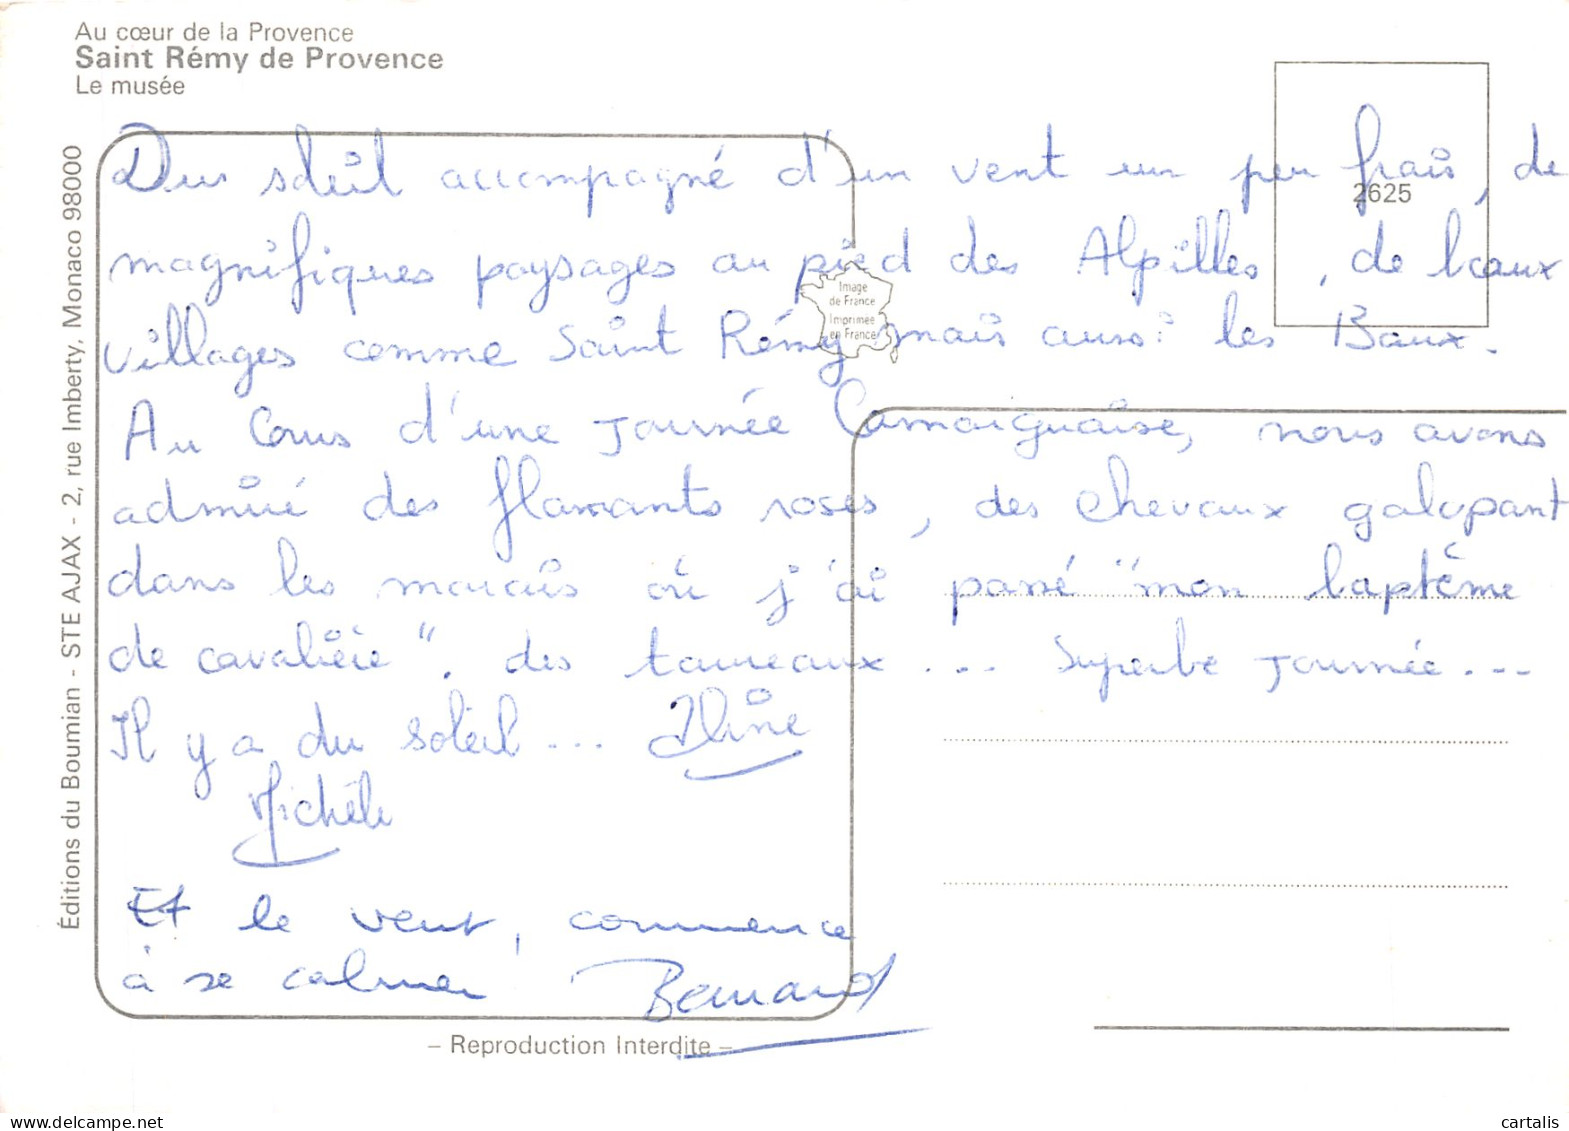 Au cœur de la Provence
Saint Rémy de Provence
Le musée
2625
Éditions du Boumian - STE AJAX - 2, rue Imberty, Monaco 98000
Image
de France
Imprimée
en France
Du soleil accompagné d'un vent un peu frais, de
magnifiques paysages au pied des Alpilles, de beaux
villages comme Saint Rémy mais aussi les Baux.
Au cours d'une journée Camarguaise, nous avons
admiré des flamants roses, des chevaux galopant
dans les marais où j'ai passé "mon baptême
de cavalière". des taureaux ... Superbe journée ...
Il y a du soleil ... Aline
Michèle
Et le vent, commence
à se calmer Bernard
– Reproduction Interdite –
cartalis